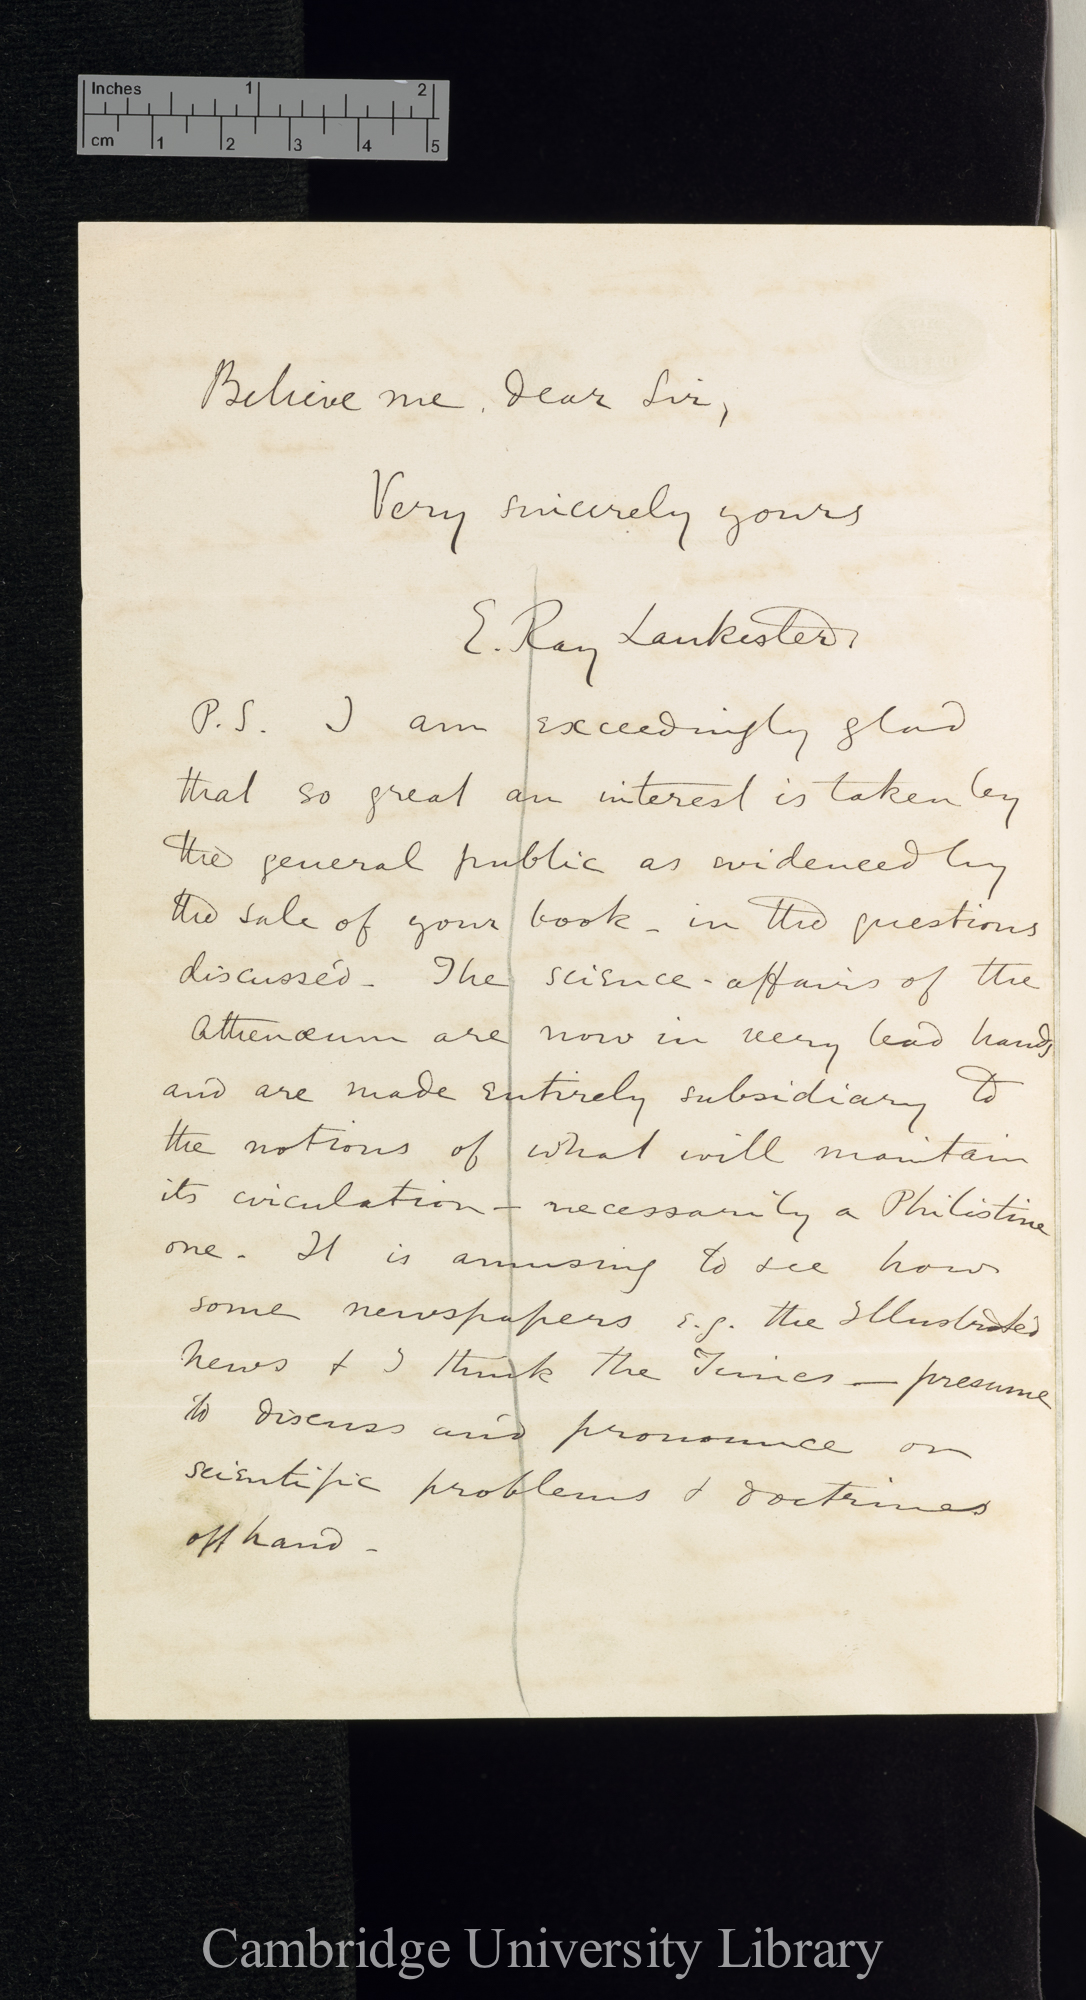 Inches 1 2
cm 1 2 3 4 5
Believe me, dear Sir,
Very sincerely yours
E. Ray Lankester.
P.S. I am exceedingly glad
that so great an interest is taken by
the general public as evidenced by
the sale of your book - in the questions
discussed - The science-affairs of the
Athenæum are now in very bad hands
and are made entirely subsidiary to
the notions of what will maintain
its circulation - necessarily a Philistine
one. It is amusing to see how
some newspapers e.g. the Illustrated
News & I think the Times — presume
to discuss and pronounce on
scientific problems & doctrines
offhand -
Cambridge University Library